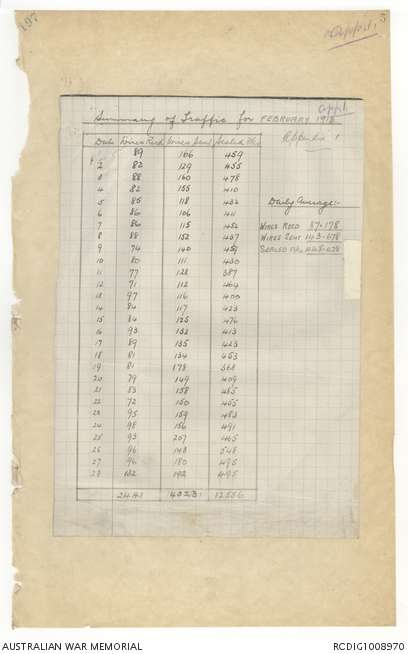 197
Appdx. 3
Appdx
Summary of Traffic for FEBRUARY 1918
Appendix 1
Date Wires Recd Wires Sent Sealed Pks
89 166 459
2 82 129 455
3 88 160 478
4 82 155 410
5 85 118
6 86 106 411
7 86 115 452
8 88 152 437
9 74 140 457
10 80 111 430
11 77 128 387
12 71 112 464
13 97 116 400
14 84 117 423
15 84 125 476
16 93 132 413
17 89 135 423
18 81 134 453
19 81 178 368
20 79 149 409
21 83 158 485
22 72 150 455
23 95 159 483
24 98 156 491
25 93 207 465
26 96 148 548
27 96 180 495
28 132 192 495
2441 4023 12556
Daily Average:-
WIRES RECD 87.178
WIRES SENT 143.678
SEALED Pks 448.428
AUSTRALIAN WAR MEMORIAL
RCDIG1008970